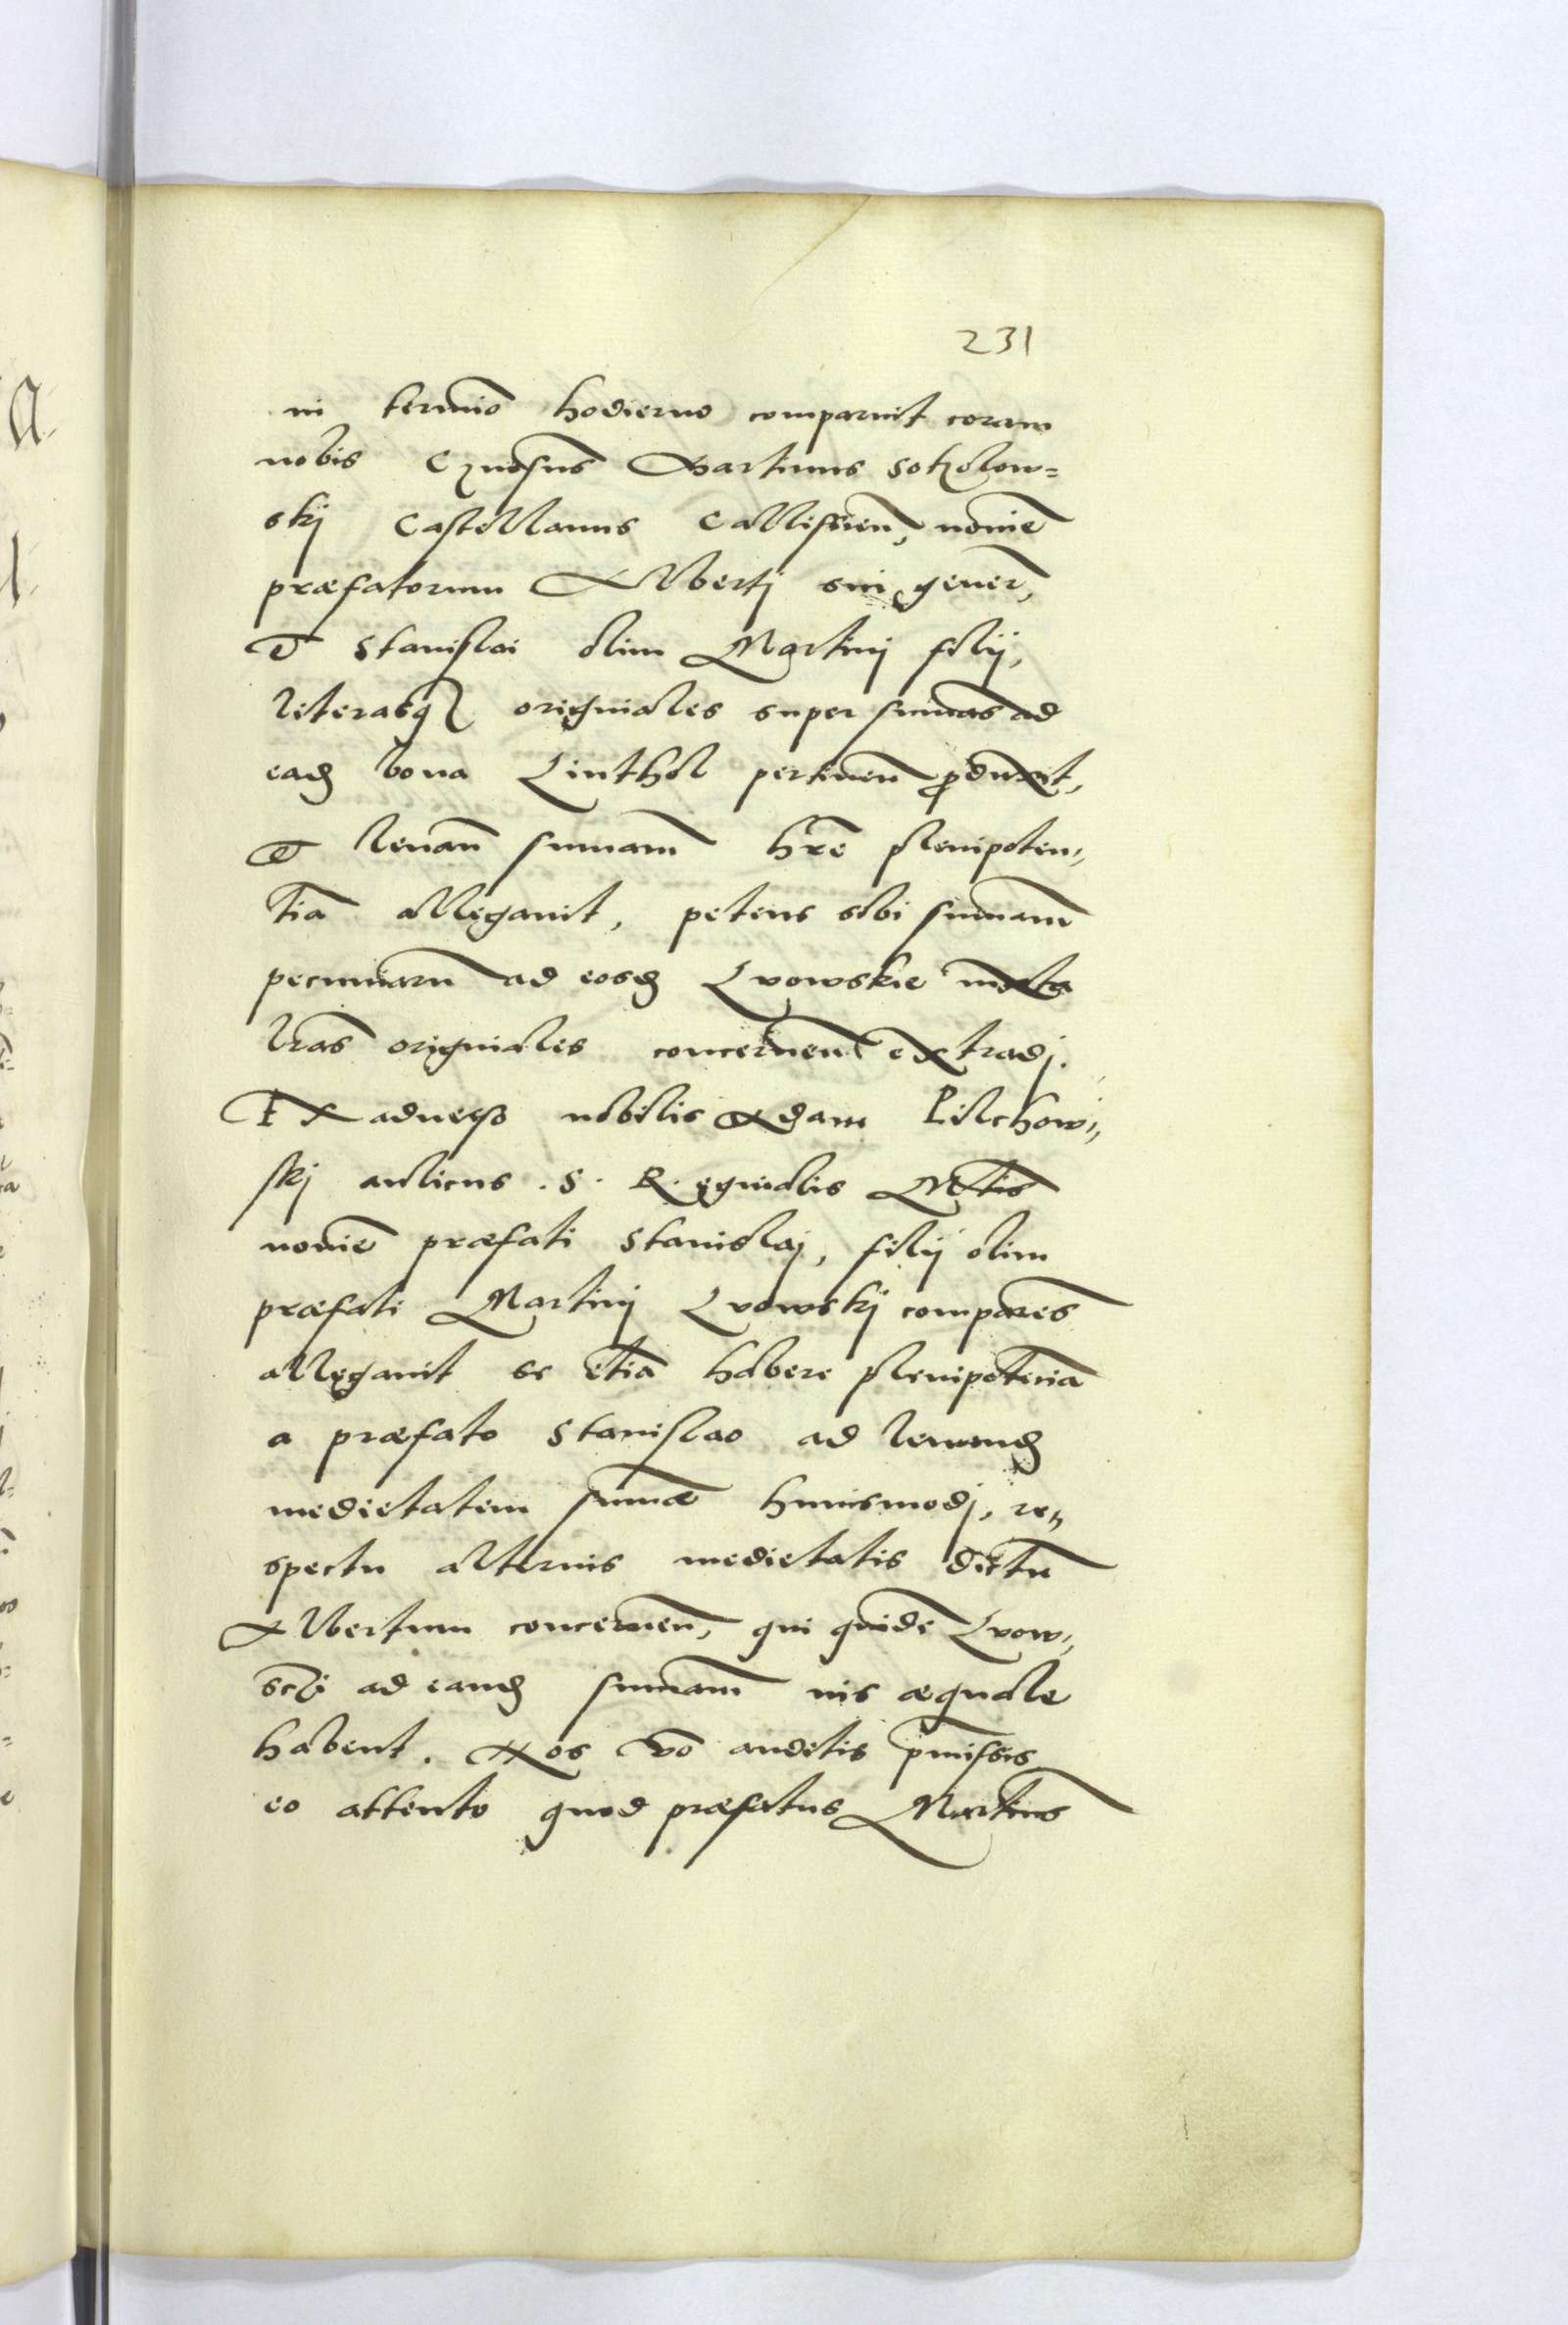 231
in termīo hodierno comparuit coram
nobis Gnosus Martinus Sokolow=
skj Castellanus Callissien, nomīe
præfatorum Albertj sui gener,
et Stanislai olim Martinj filij,
literasq originales super sūmas ad
ead bona Linthol pertinen produxit,
et leuān sūmam hr̄e plenipoten„
tiā allegauit, petens sibi sūmam
pecuniarū ad eosd Lvowskie iuxta
lr̄as originales concernen extradj.
Ex aduerso nobilis Adam Pilchow„
skj aulicus . S . R. eginalis Mtis
nomīe præfati Stanislaj, filij olim
præfati Martinj Lvowskj compares
allegauit se etiā habere plenipotenciā
a præfato Stanislao ad leuand
medietatem sūmæ huiusmodj, re„
spectu alterius medietatis dictū
Albertum concernen, qui quidē Lvow„
sci ad eand sūmam ius æquale
habent. Nos v̄o auditis p̄missis
eo attento quod præfatus Martinus